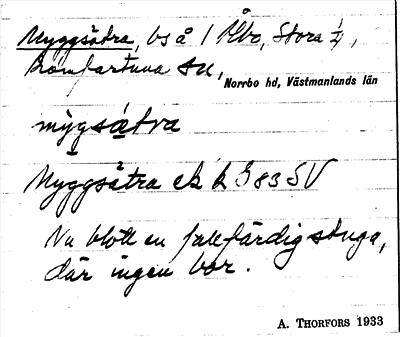 Myggsätra, bs å 1 Åbo, Stora ¼,
Romfartuna sn,
Norrbo hd, Västmanlands län
mỳgsätra
Myggsätra ek k G 83 SV
Nu blott en fallfärdig stuga,
där ingen bor.
A. THORFORS 1933